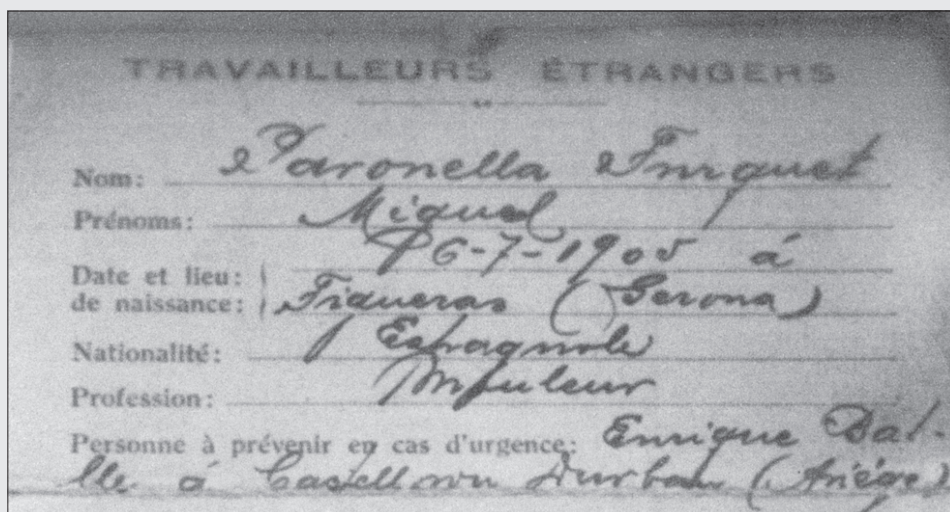 TRAVAILLEURS ÉTRANGERS
Nom: Paronella Furquet
Prénoms: Miguel
Date et lieu de naissance: 6-7-1905 á
Figueras (Gerona)
Nationalité: Espagnole
Profession: Mouleur
Personne à prévenir en cas d'urgence: Enrique Bat-
lle á Castelnou Durban (Ariége)